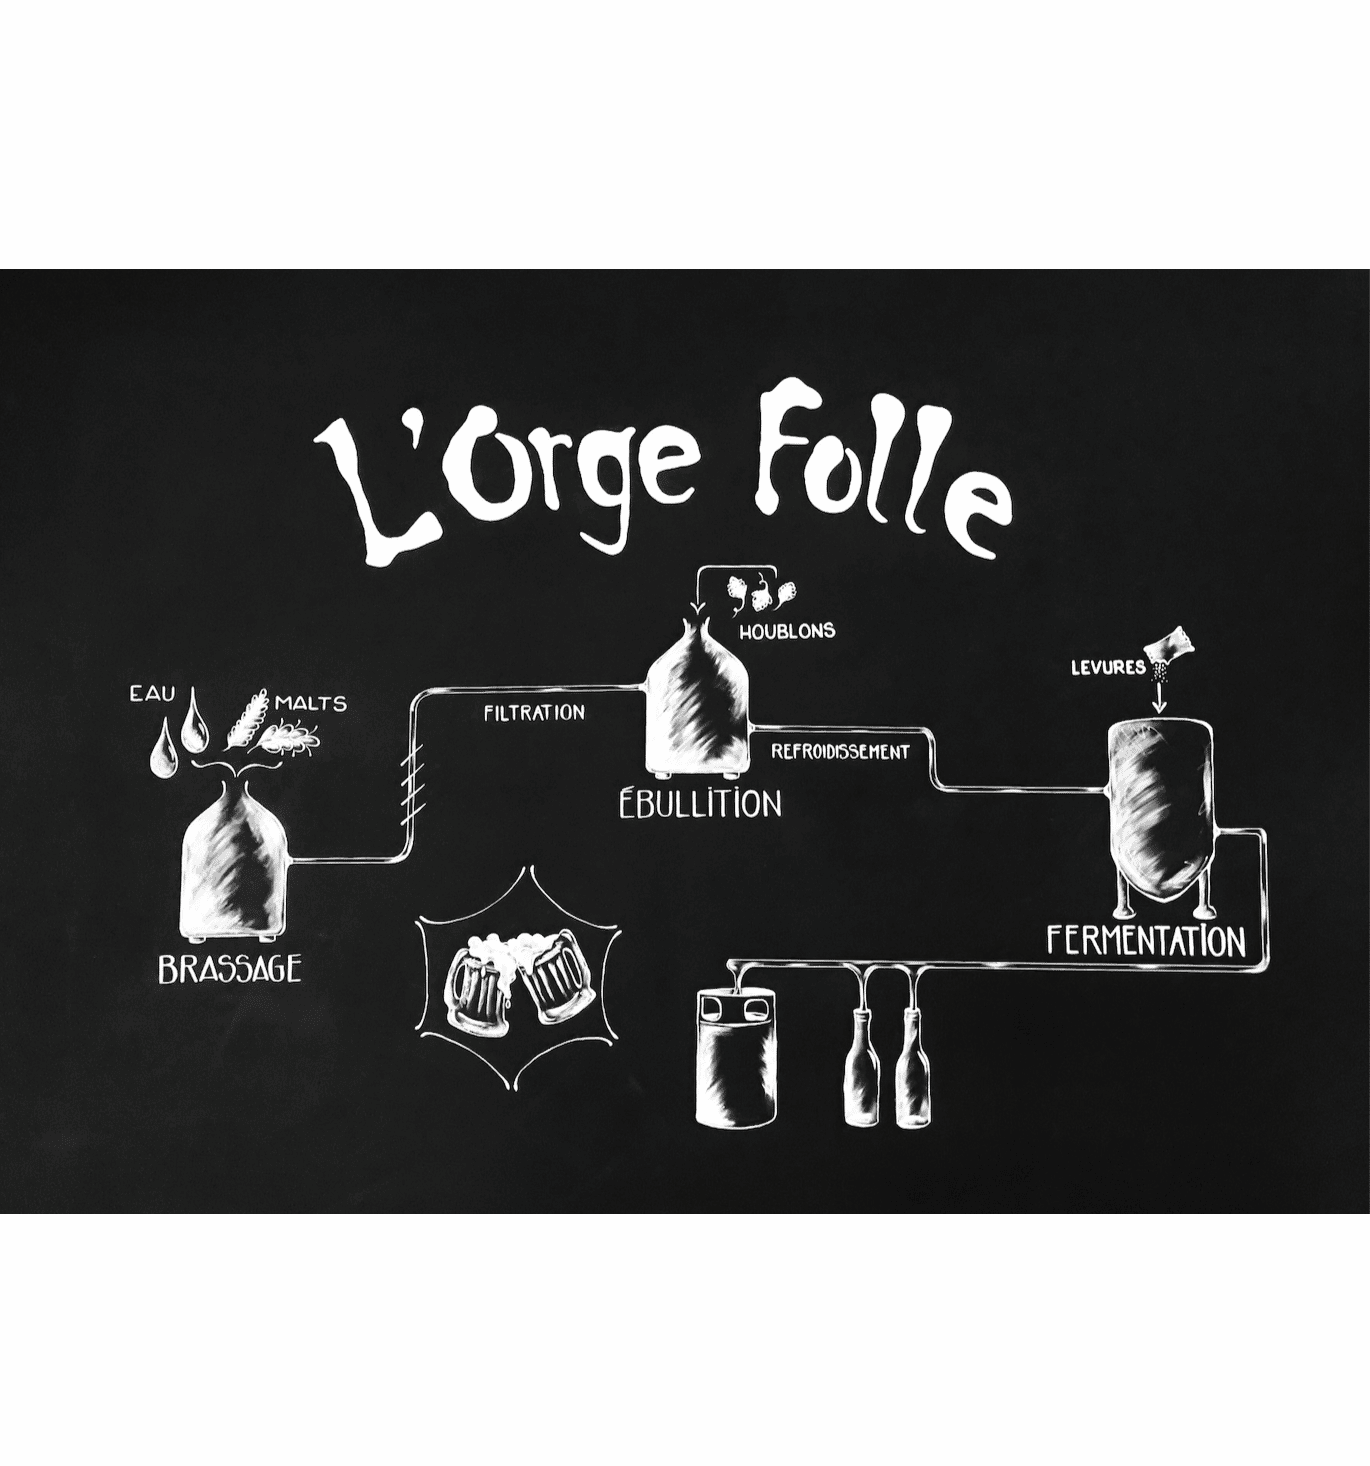 L'Orge Folle
HOUBLONS
LEVURES
EAU
MALTS
FILTRATION
REFROIDISSEMENT
ÉBULLITION
FERMENTATION
BRASSAGE